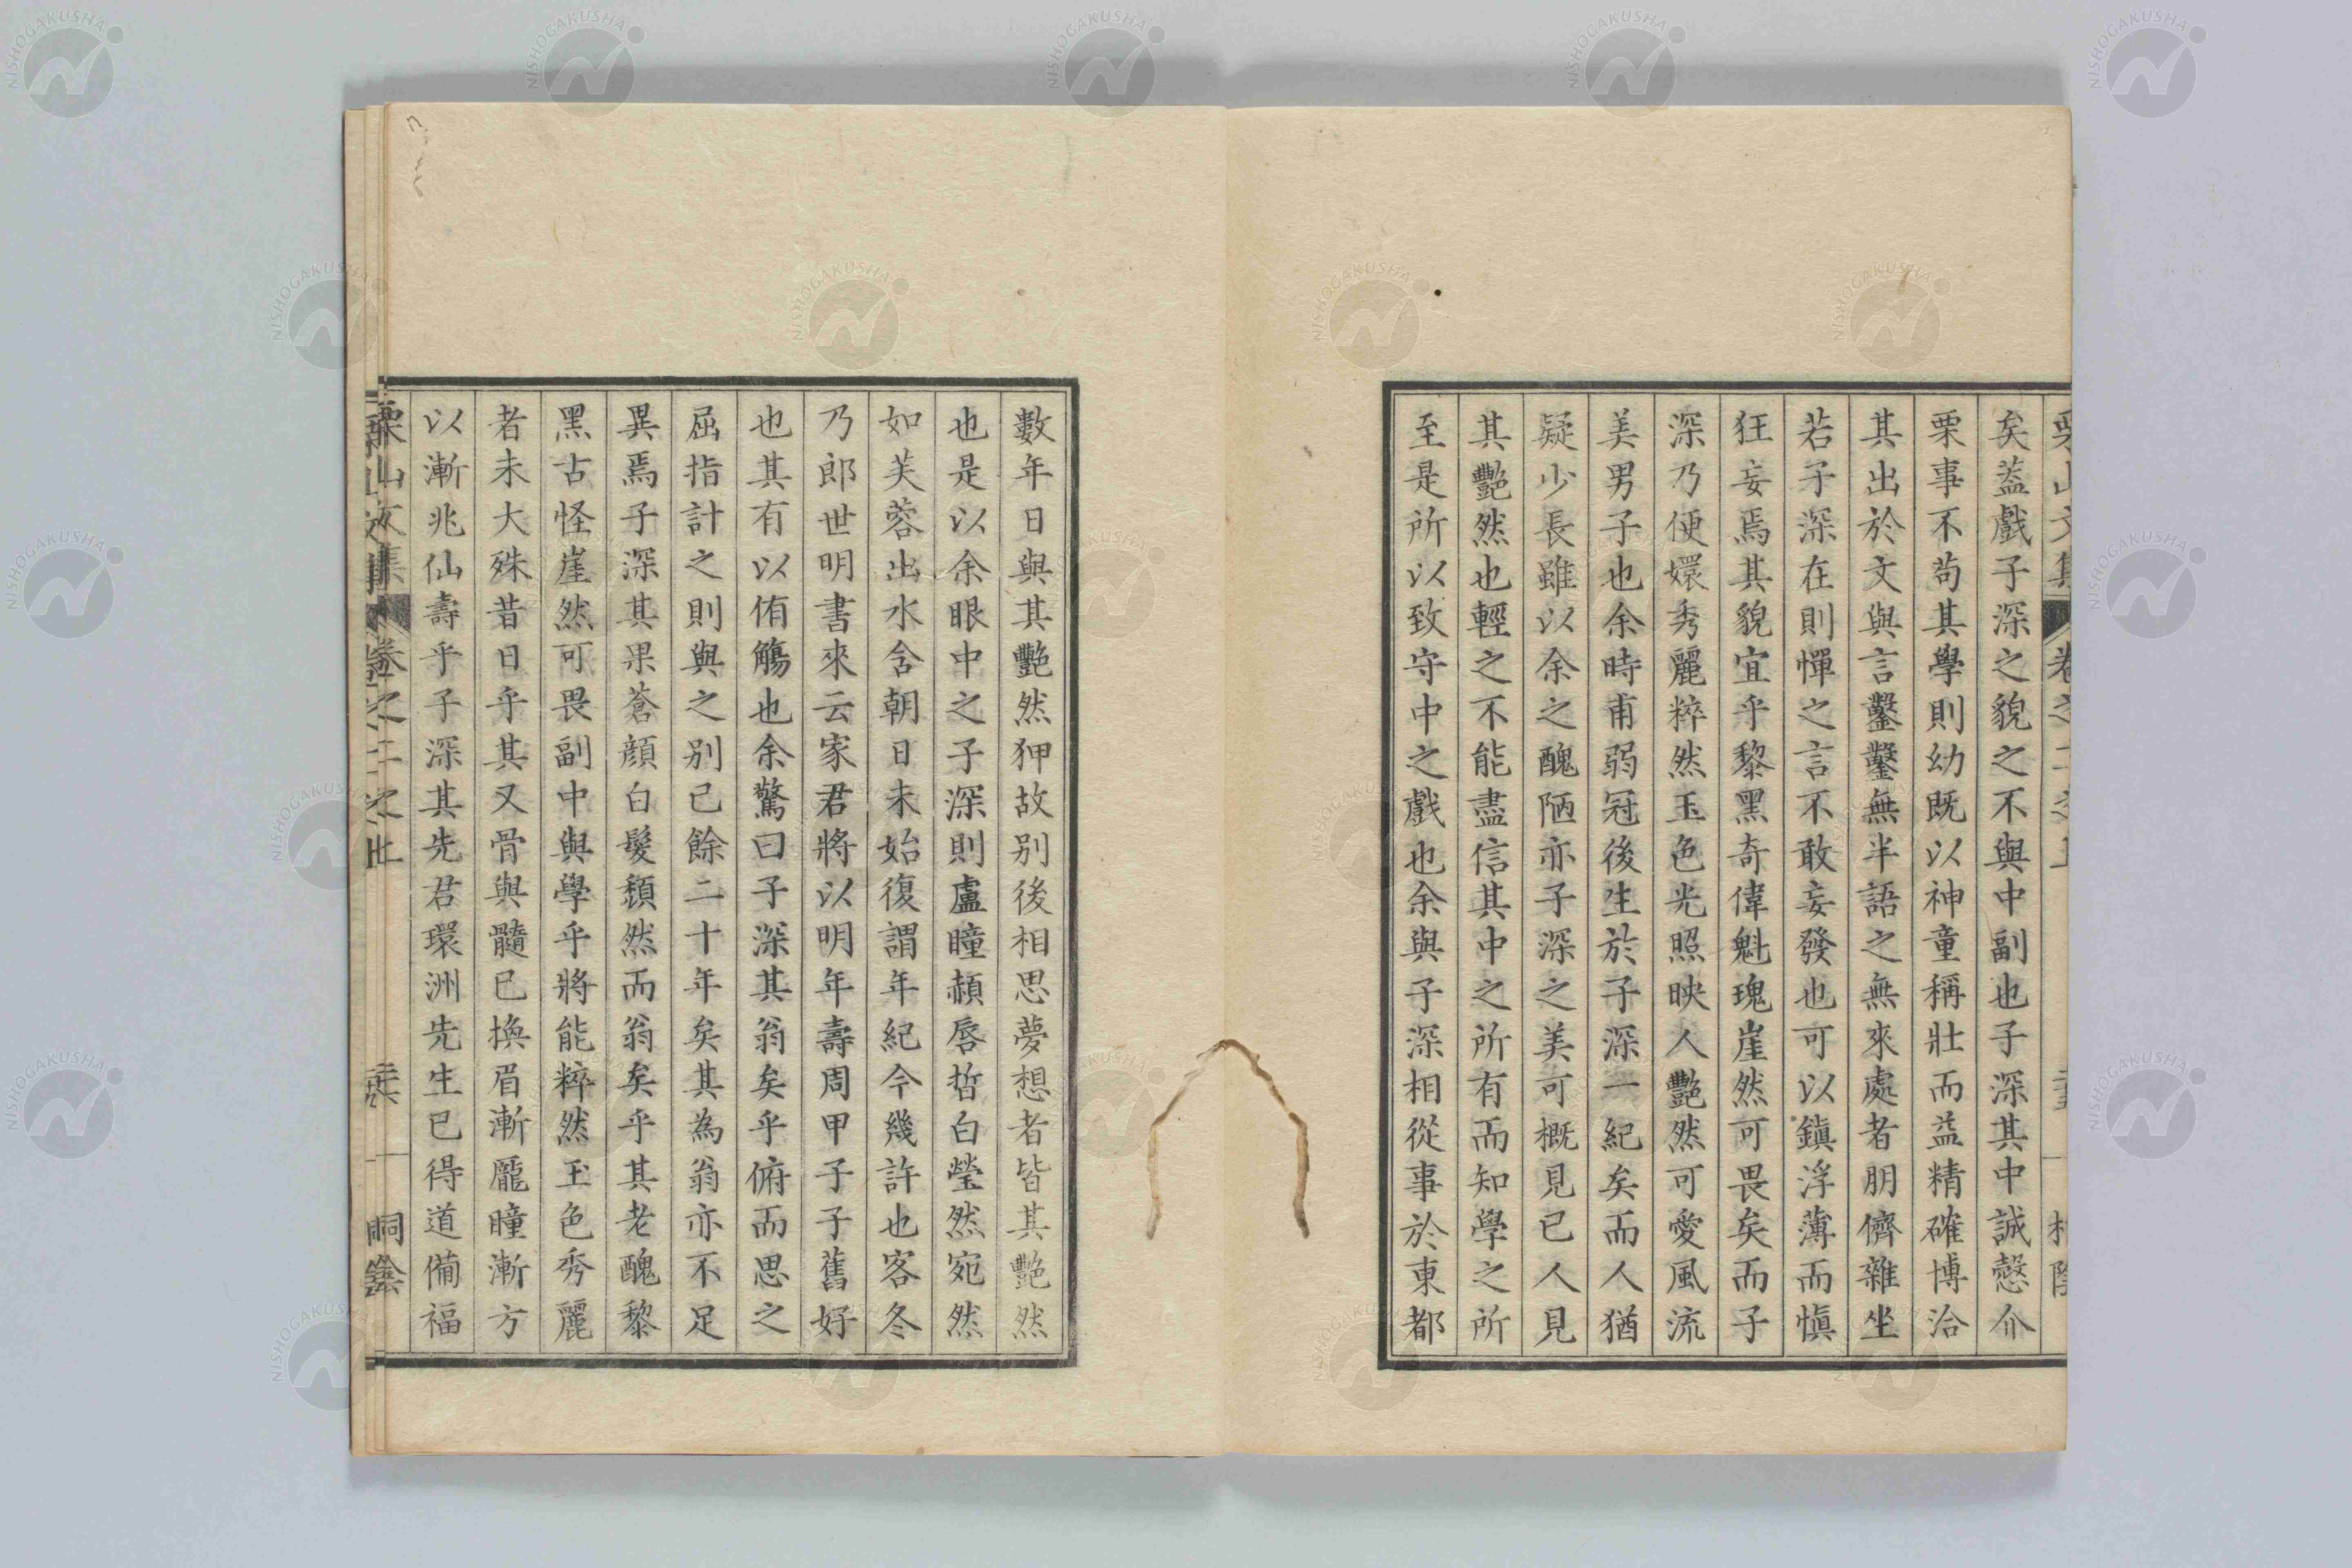 矣葢戲子深之貌之不與中副也子深其中誠慤介
栗事不茍其學則幼既以神童稱壯而益精確博洽
其出於文與言鑿鑿無半語之無來處者朋儕雜坐
若子深在則憚之言不敢妄發也可以鎮浮薄而愼
狂妄焉其貌宜乎黎黑奇偉魁瑰崖然可畏矣而子
深乃便嬛秀麗粹然玉色光照映人艷然可愛風流
美男子也余時甫弱冠後生於子深一紀矣而人猶
疑少長雖以余之醜陋亦子深之美可概見已人見
其艷然也輕之不能盡信其中之所有而知學之所
至是所以致守中之戲也余與子深相從事於東都
數年日與其艷然狎故别後相思夢想者皆其艷然
也是以余眼中之子深則盧瞳頳唇皙白瑩然宛然
如芙蓉出水含朝日未始復謂年紀今幾許也客冬
乃郎世明書來云家君將以明年壽周甲子子舊好
也其有以侑觴也余驚曰子深其翁矣乎俯而思之
屈指計之則與之别已餘二十年矣其為翁亦不足
異焉子深其果蒼顔白髮頽然而翁矣乎其老醜黎
黑古怪崖然可畏副中與學乎將能粹然玉色秀麗
者未大殊昔日乎其又骨與髓已換眉漸龐瞳漸方
以漸兆仙壽乎子深其先君環洲先生已得道備福
栗山文集
卷之二之上
NISHOGAKUSHA